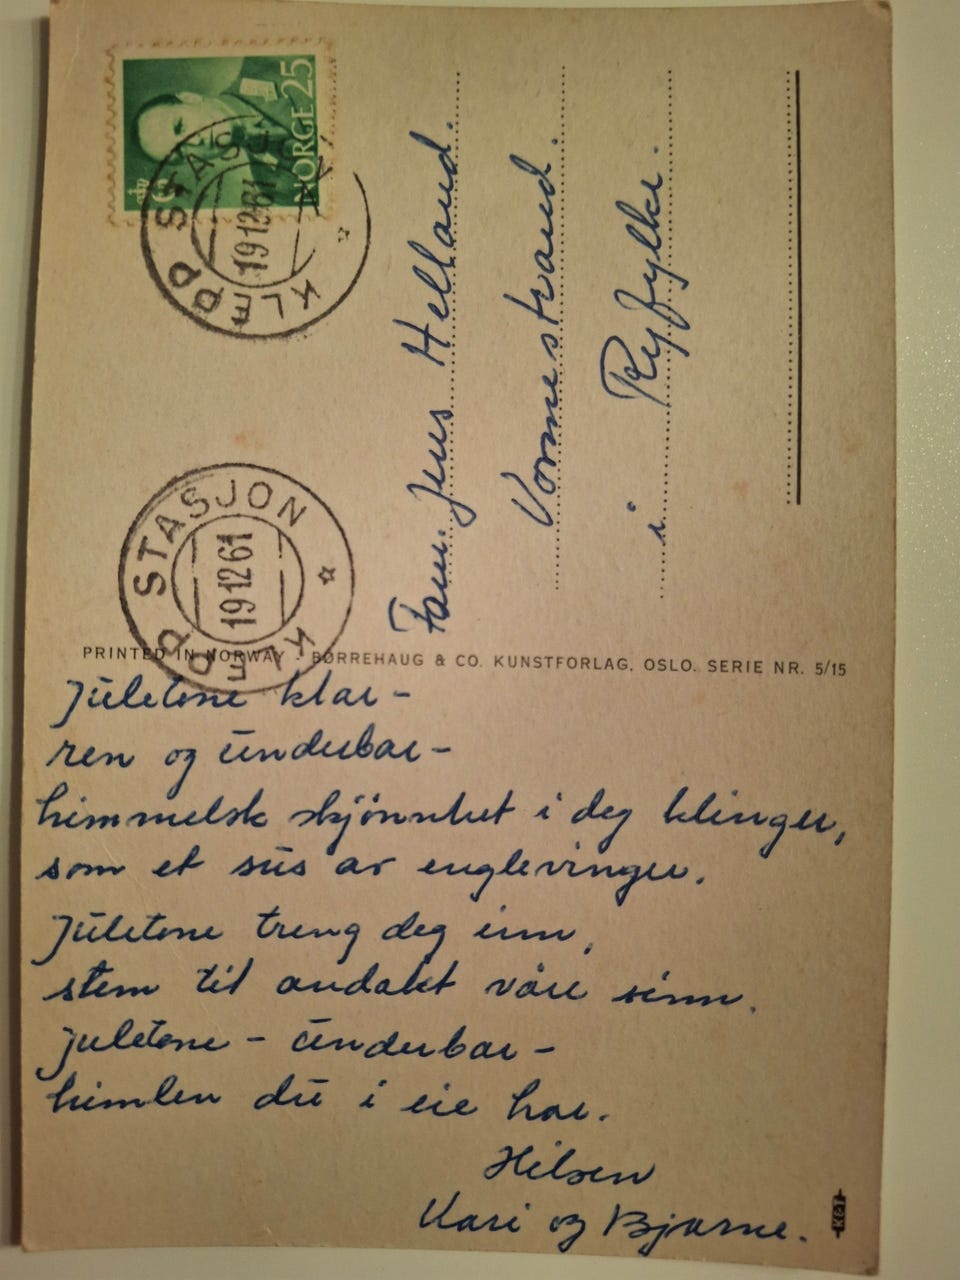 NORGE 25
KLEPP STASJON
19 12 61
KLEPP STASJON
19 12 61
Fam. Jens Helland.
Vormestrand.
i Ryfylke.
PRINTED IN NORWAY - BØRREHAUG & CO. KUNSTFORLAG. OSLO. SERIE NR. 5/15
Juletone klar -
ren og underbar -
himmelsk skjønnhet i deg klinger,
som et sus av englevinger.
Juletone treng deg inn,
stem til andakt våre sinn.
juletone - underbar -
himlen du i eie har.
Hilsen
Kari og Bjarne.
K&T